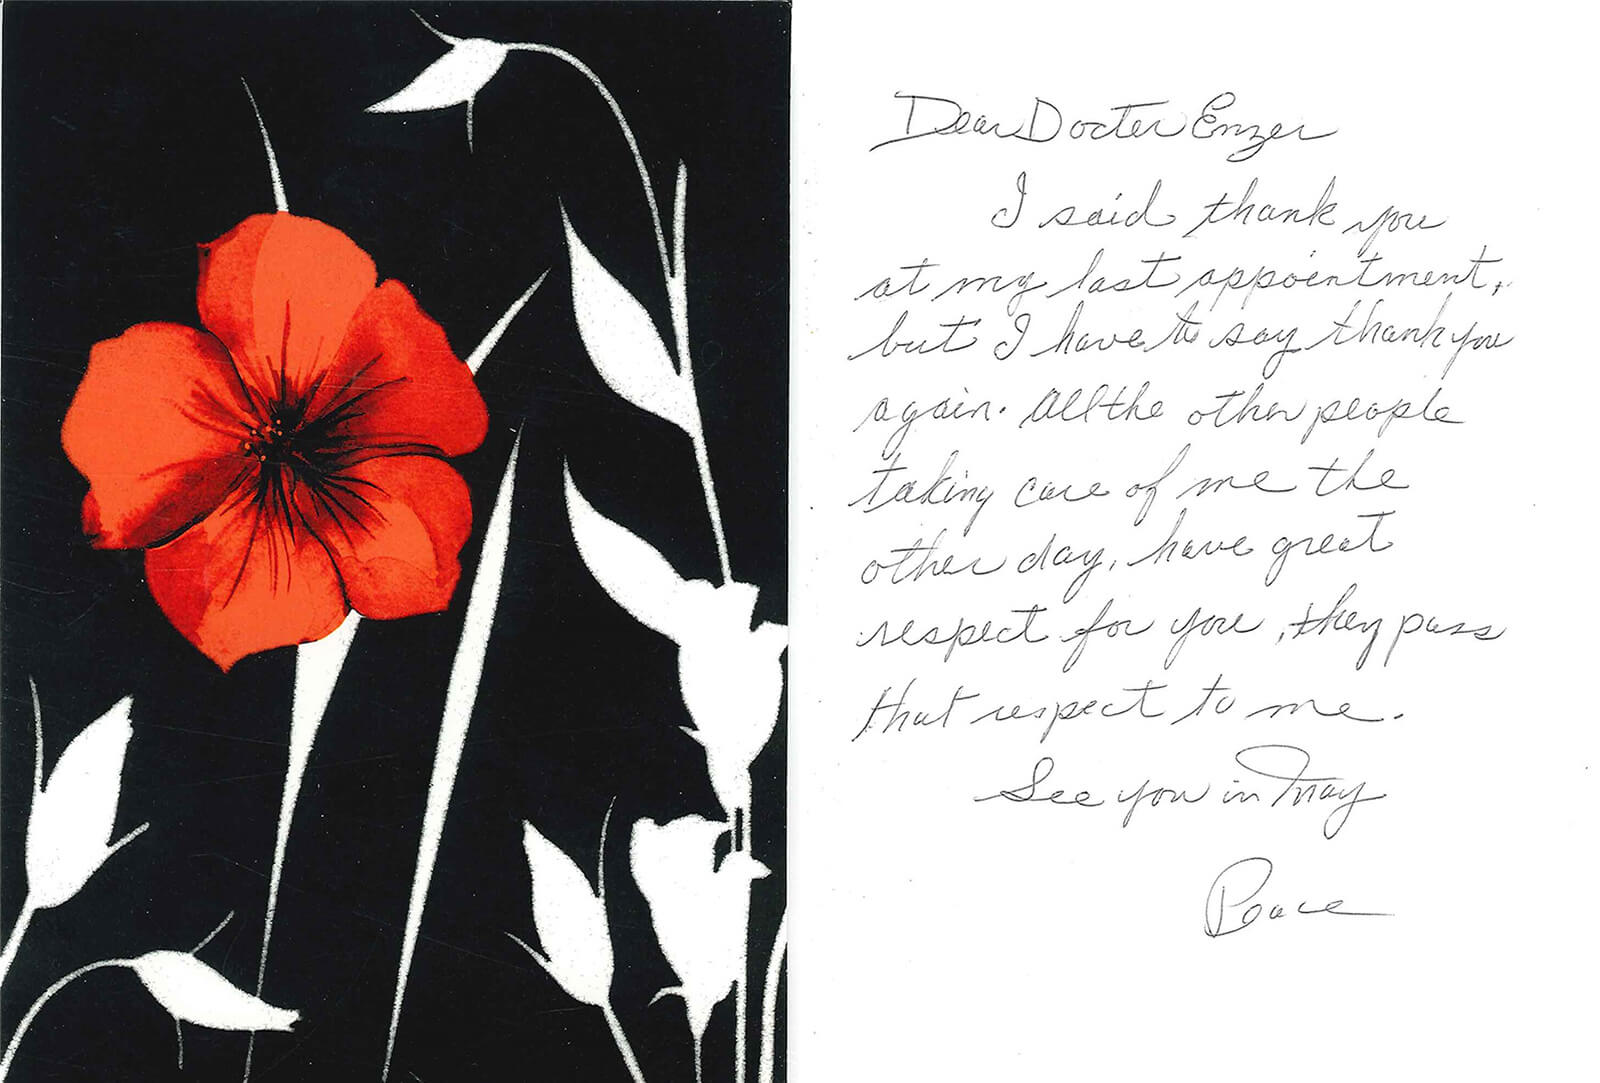 Dear Docter Enzer
I said thank you
at my last appointment,
but I have to say thank you
again. All the other people
taking care of me the
other day, have great
respect for you, they pass
that respect to me.
See you in May
Peace